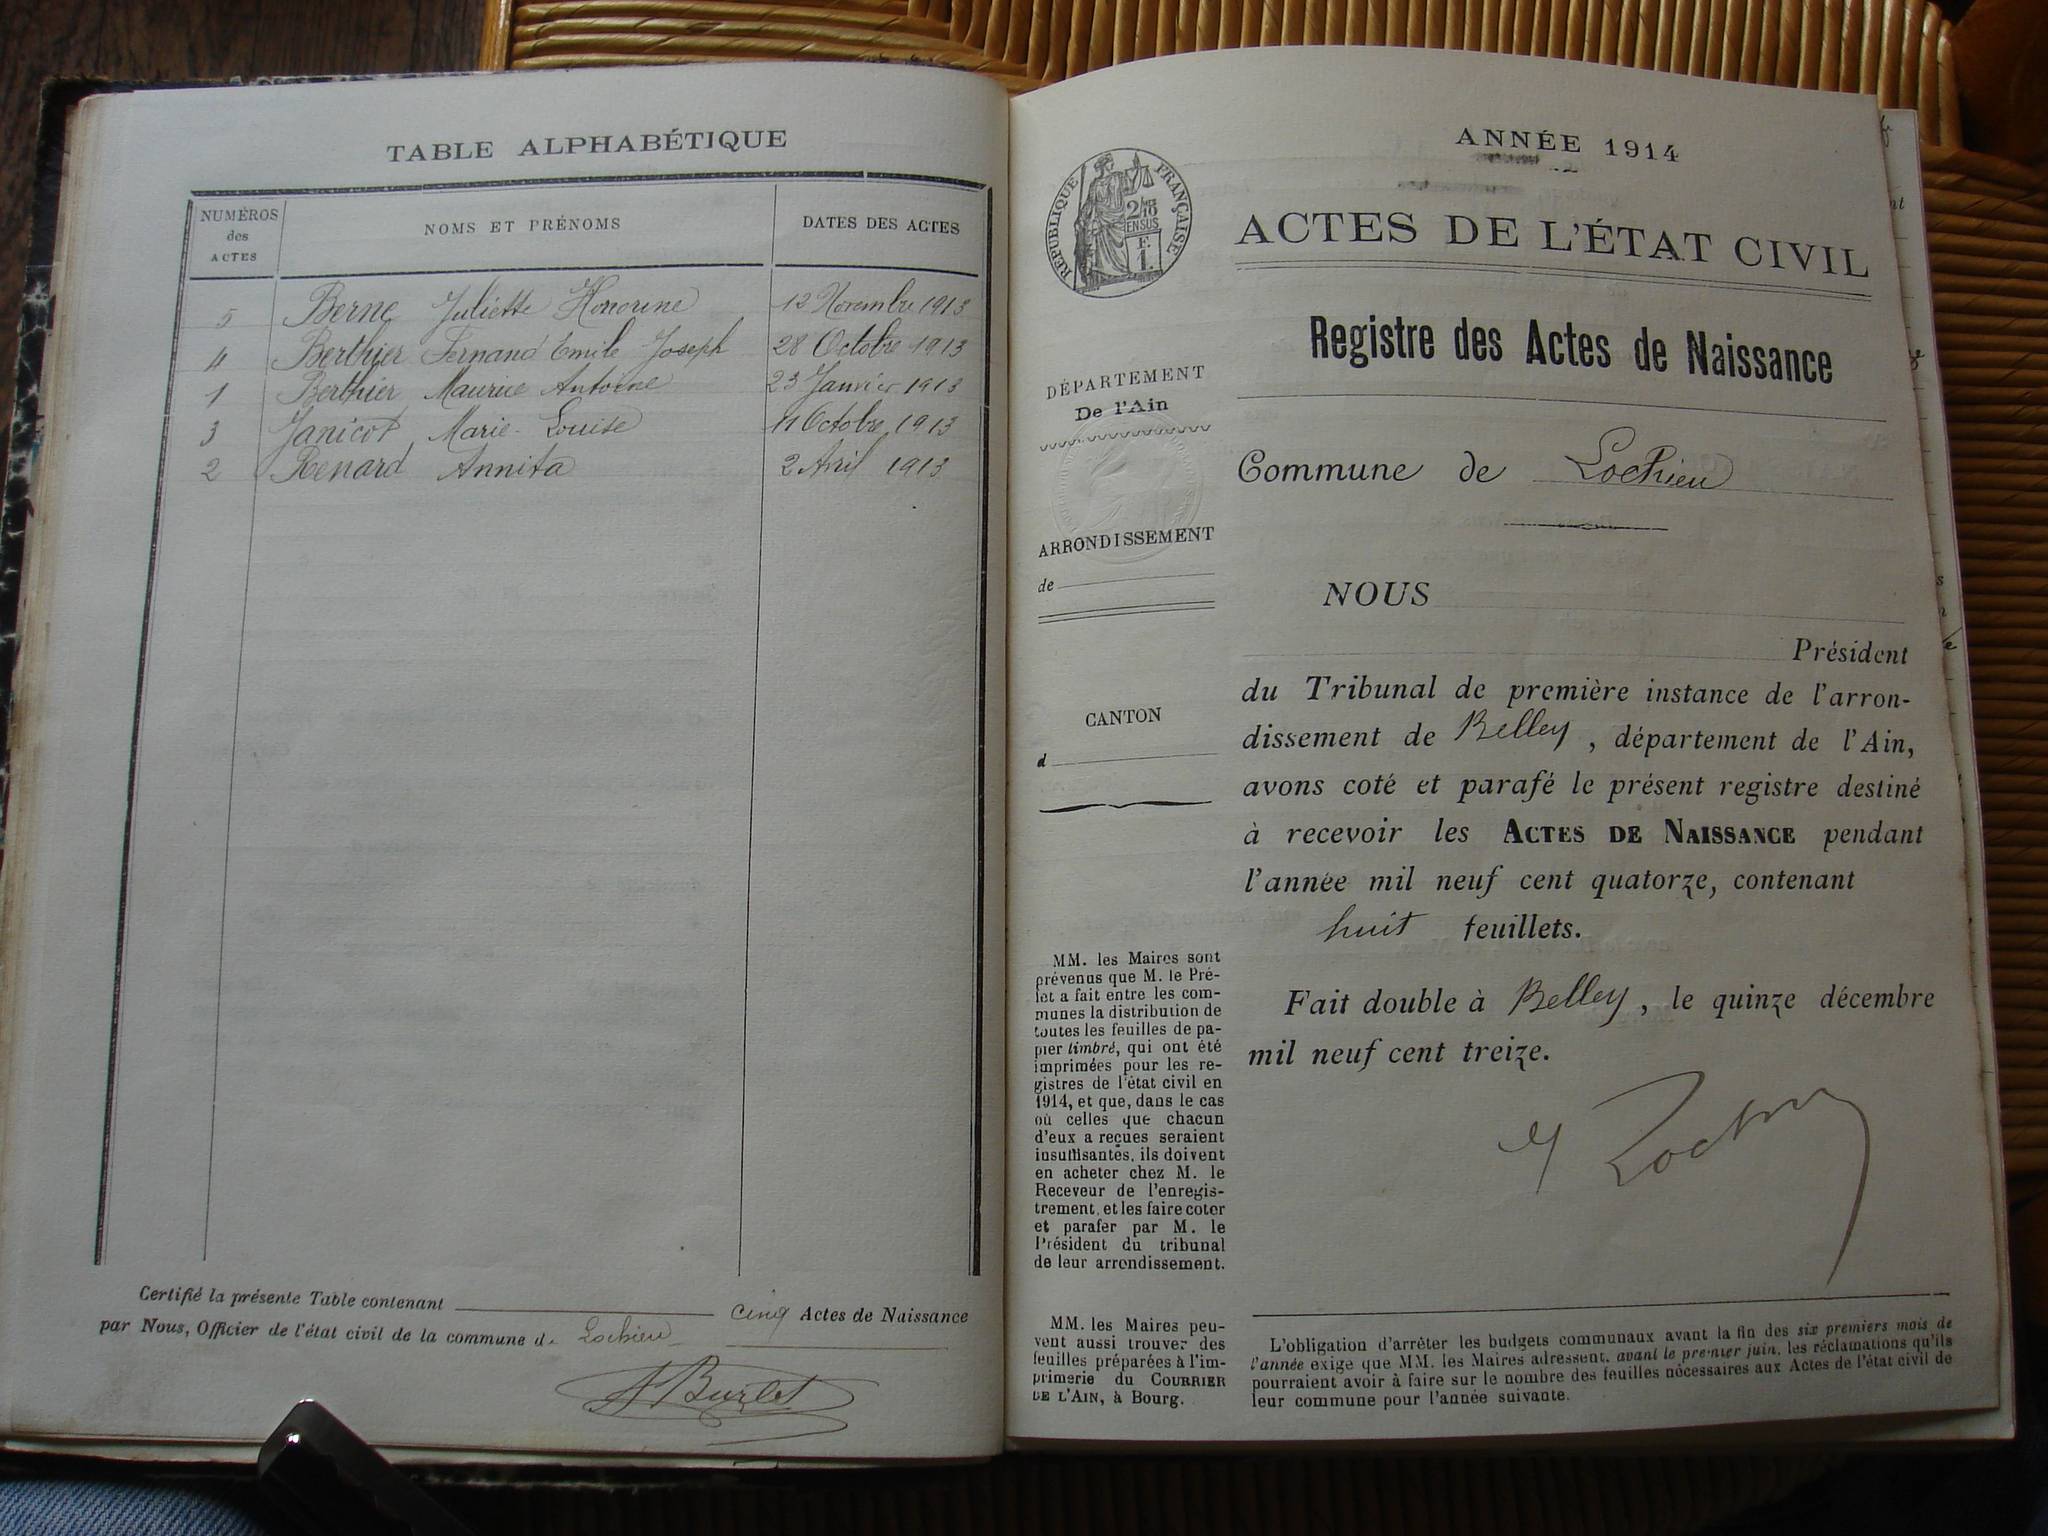 TABLE ALPHABÉTIQUE
NUMÉROS des ACTES
NOMS ET PRÉNOMS
DATES DES ACTES
5 Berne Juliette Honorine 12 Novembre 1913
4 Berthier Fernand Emile Joseph 28 Octobre 1913
1 Berthier Maurice Antoine 23 Janvier 1913
3 Janicot Marie-Louise 11 Octobre 1913
2 Renard Annita 2 Avril 1913
Certifié la présente Table contenant cinq Actes de Naissance
par Nous, Officier de l'état civil de la commune de Lochieu
Burlet
ANNÉE 1914
RÉPUBLIQUE FRANÇAISE
2/10 EN SUS
ACTES DE L'ÉTAT CIVIL
Registre des Actes de Naissance
DÉPARTEMENT
De l'Ain
Commune de Lochieu
ARRONDISSEMENT
de
CANTON
d
NOUS
Président
du Tribunal de première instance de l'arron-
dissement de Belley, département de l'Ain,
avons coté et parafé le présent registre destiné
à recevoir les ACTES DE NAISSANCE pendant
l'année mil neuf cent quatorze, contenant
huit feuillets.
Fait double à Belley, le quinze décembre
mil neuf cent treize.
MM. les Maires sont
prévenus que M. le Pré-
fet a fait entre les com-
munes la distribution de
toutes les feuilles de pa-
pier timbré, qui ont été
imprimées pour les re-
gistres de l'état civil en
1914, et que, dans le cas
où celles que chacun
d'eux a reçues seraient
insuffisantes, ils doivent
en acheter chez M. le
Receveur de l'enregis-
trement, et les faire coter
et parafer par M. le
Président du tribunal
de leur arrondissement.
MM. les Maires peu-
vent aussi trouver des
feuilles préparées à l'im-
primerie du COURRIER
DE L'AIN, à Bourg.
L'obligation d'arrêter les budgets communaux avant la fin des six premiers mois de
l'année exige que MM. les Maires adressent, avant le premier juin, les réclamations qu'ils
pourraient avoir à faire sur le nombre des feuilles nécessaires aux Actes de l'état civil de
leur commune pour l'année suivante.